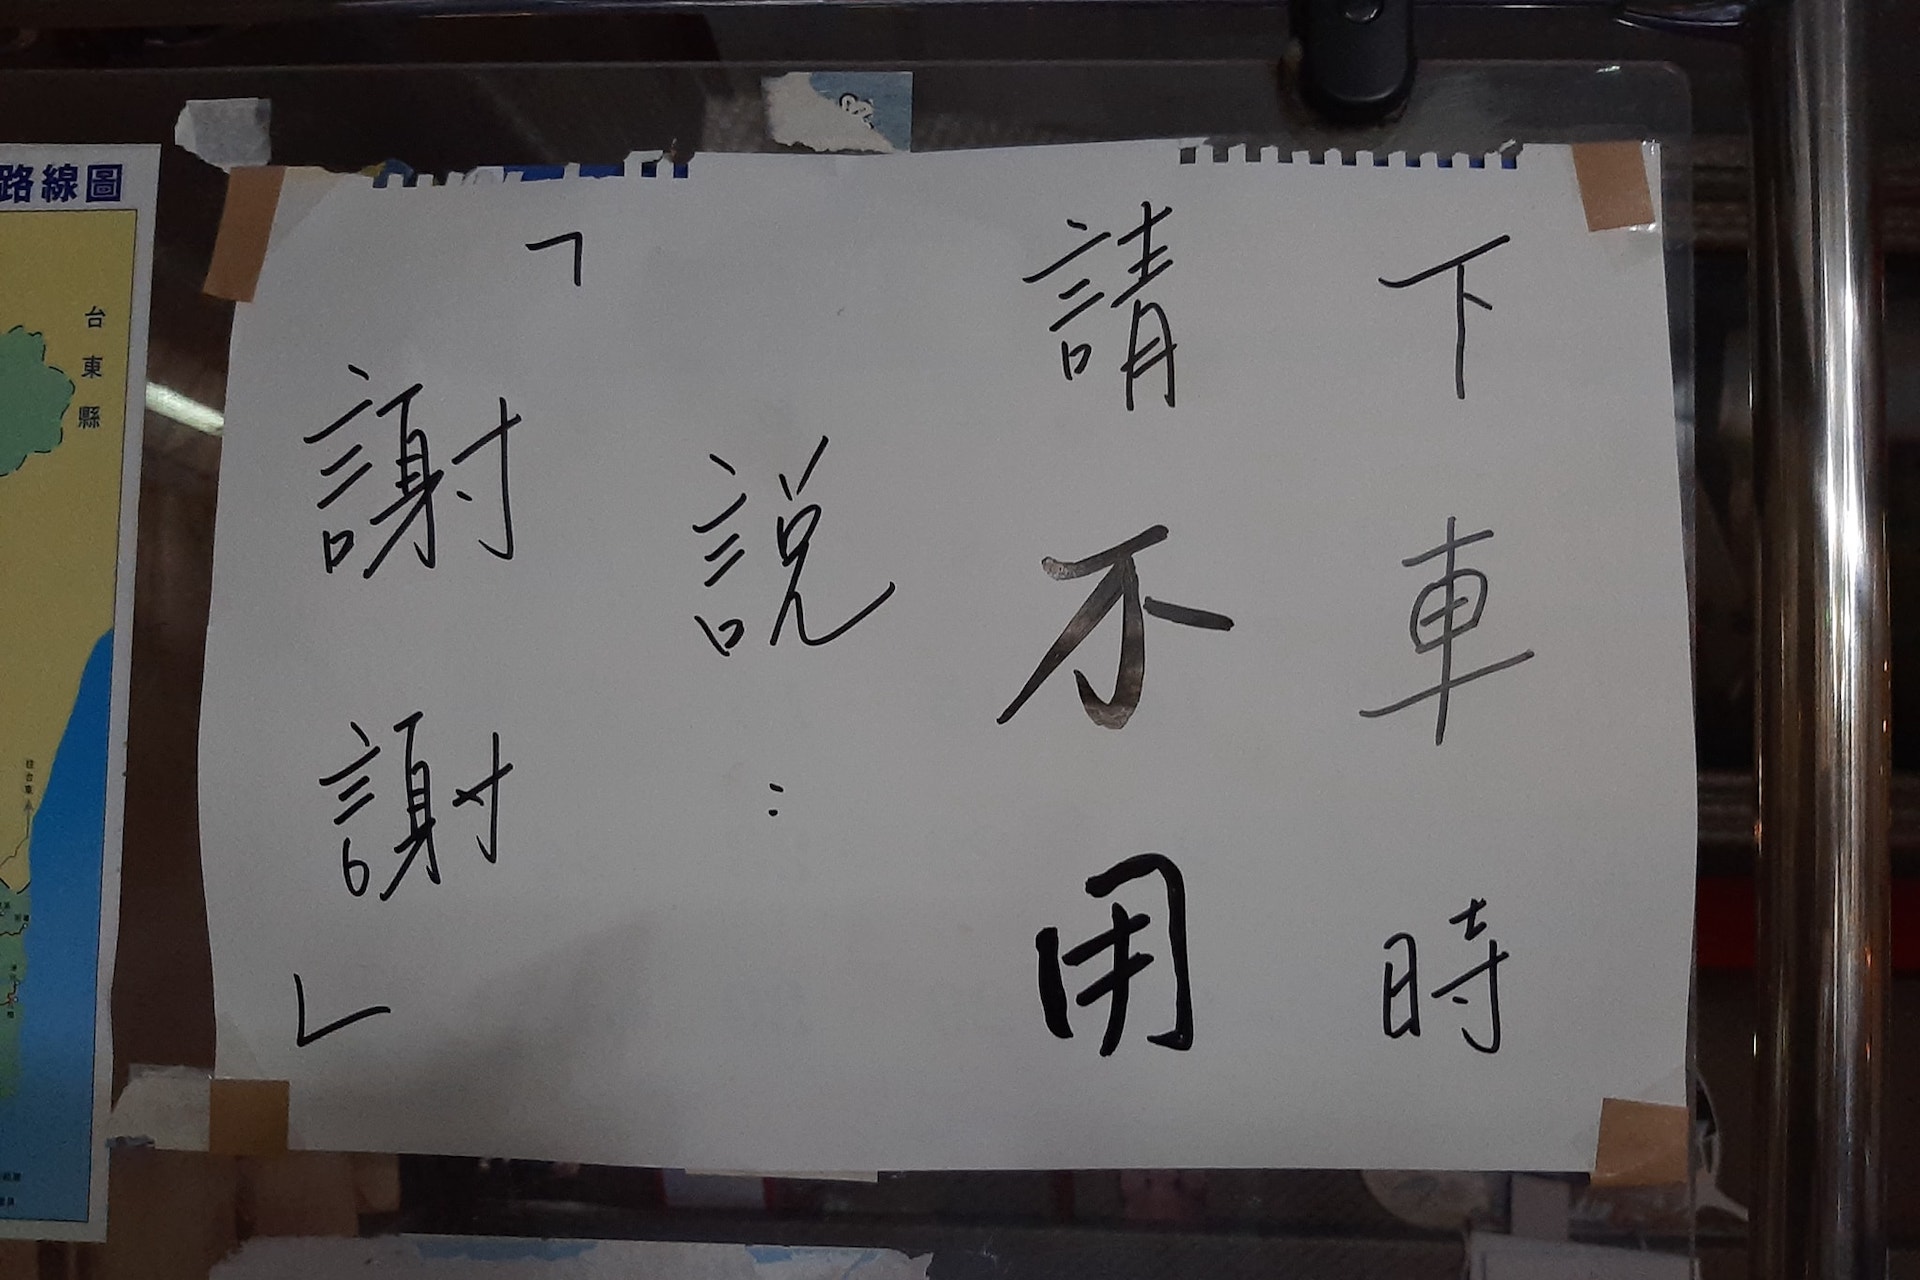 下車時
請不用
說：
﹁謝謝﹂
路線圖
台東縣